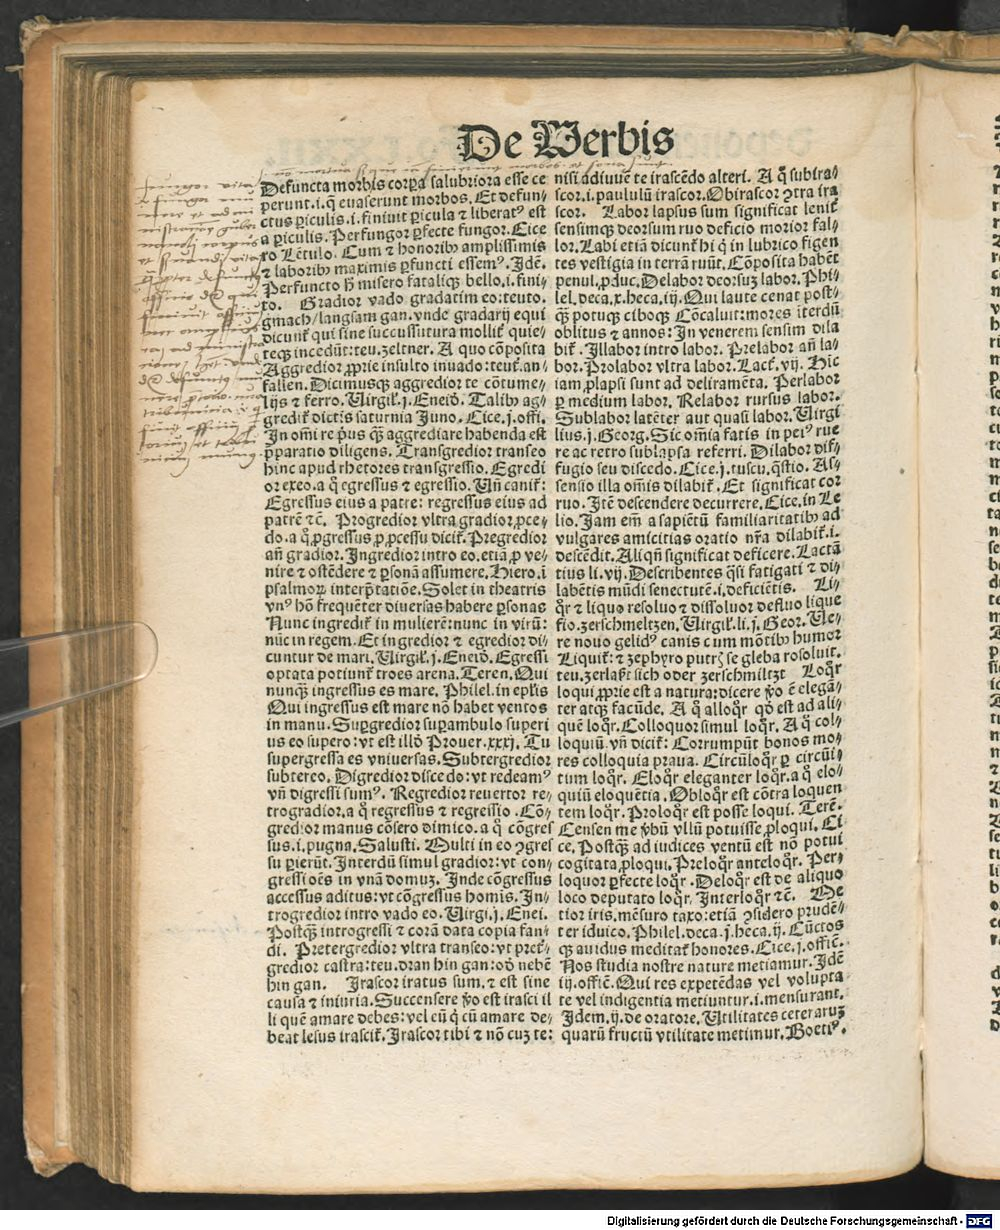 De Verbis
Defuncta morbis corꝑa salubriora esse ce
perunt.i.q̨ euaserunt morbos. Et defun⸗
ctus ꝑiculis.i.finiuit ꝑicula ⁊ liberatꝰ est
a ꝑiculis. Perfungor ꝑfecte fungor. Cice
ro Lētulo. Cum ⁊ honoribꝰ amplissimis
⁊ laboribꝰ maximis ꝑfuncti essemꝰ. Idē.
Perfuncto ħ misero fataliqꝫ bello.i.fini⸗
to. Gradior vado gradatim eo:teuto.
gmach/langsam gan. vnde gradarij equi
dicunt᷑ qui sine succussutura mollit᷑ quie⸗
teqꝫ incedūt:teu.zeltner. A quo cōposita
Aggredior ꝓprie insulto inuado:teut.an⸗
fallen. Dicimusqꝫ aggredior te cōtume⸗
lijs ⁊ ferro. Uirgil.j.Eneid. Talibꝰ ag⸗
gredit᷑ dictis saturnia Juno. Cice.j.offi.
In omi re p̄us q̄ꝫ aggrediare habenda est
p̄paratio diligens. Transgredior transeo
hinc apud rhetores transgressio. Egredi
or exeo.a q̊ egressus ⁊ egressio. Uñ canit᷑:
Egressus eius a patre: regressus eius ad
patrē ⁊c̄. Progredior vltra gradior,ꝓce⸗
do.a q̊ ꝓgressus ꝓ ꝓcessu dicit᷑. Pregredior
añ gradior. Ingredior intro eo.etiā ꝓ ve⸗
nire ⁊ ostēdere ⁊ ꝑsonā assumere. Hiero.ī
psalmoꝝ interp̄tatiōe. Solet in theatris
vnꝰ hō frequēter diuersas habere ꝑsonas
Nunc ingredit᷑ in mulierē:nunc in virū:
nūc in regem. Et ingredior ⁊ egredior di⸗
cuntur de mari. Uirgil.j.Eneid. Egressi
optata potiunt᷑ troes arena. Teren. Qui
nunqꝫ ingressus es mare. Philel.in ep̄lis
Qui ingressus est mare nō habet ventos
in manu. Suꝑgredior suꝑambulo superi
us eo supero:vt est illd̄ Prouer.xxxj. Tu
supergressa es vniuersas. Subtergredior
subtereo. Digredior discedo:vt redeamꝰ
vñ digressi sumꝰ. Regredior reuertor re⸗
trogradior.a q̊ regressus ⁊ regressio. Cō⸗
gredior manus cōsero dimico.a q̊ cōgres
sus.i.pugna. Salusti. Multi in eo ꝯgres
su ꝑierūt. Interdū simul gradior:vt con⸗
gressi oēs in vnā domuꝫ. Inde cōgressus
accessus aditus:vt cōgressus homīs. In⸗
trogredior intro vado eo. Uirgi.j.Enei.
Postqꝫ introgressi ⁊ corā data copia fan⸗
di. Pretergredior vltra transeo:vt preť⸗
gredior castra:teu.dran hin gan:od̄ nebē
hin gan. Irascor iratus sum.⁊ est sine
causa ⁊ iniuria. Succensere ꝟo est irasci il
li quē amare debes:vel cū q̊ cū amare de⸗
beat lesus irascit᷑. Irascor tibi ⁊ nō cuꝫ te:
nisi adiuuē te irascēdo alteri. A q̊ subira⸗
scor.i.paululū irascor. Obirascor ꝯtra ira
scor. Labor lapsus sum significat lenit᷑
sensimqꝫ deorsum ruo deficio morior fal⸗
lor. Labi etiā dicunt᷑ hi q̇ in lubrico figen
tes vestigia in terrā ruūt. Cōposita habēt
penul.ꝓduc. Delabor deorsuꝫ labor. Phi⸗
lel.deca.x.heca.iij. Qui laute cenat post⸗
qꝫ potuqꝫ ciboqꝫ Cōcaluit:mores iterdū
oblitus ⁊ annos: In venerem sensim dila
bit᷑. Illabor intro labor. Prelabor añ la⸗
bor. Prolabor vltra labor. Lact̄.vij. Hic
iam ꝓlapsi sunt ad deliramēta. Perlabor
ꝑ medium labor. Relabor rursus labor.
Sublabor latēter aut quasi labor. Uirgi
lius.j.Georg. Sic omīa fatis in peiꝰ rue
re ac retro sublapsa referri. Dilabor dif⸗
fugio seu discedo. Cice.j.tuscu.q̄stio. As⸗
sensio illa omīs dilabit᷑. Et significat cor
ruo. Itē descendere decurrere. Cice.in Le
lio. Jam em̄ a sapiētū familiaritatibꝰ ad
vulgares amicitias oratio nr̄a dilabit᷑.i.
descēdit. Aliqñ significat deficere. Lactā
tius li.vij. Describentes q̄si fatigati ⁊ di⸗
labētis mūdi senectutē.i.deficiētis. Li⸗
q̊r ⁊ liquo resoluo ⁊ dissoluor defluo lique
fio.zerschmeltzen. Uirgil.li.j.Geor. Ue⸗
re nouo gelidꝰ canis cum mōtibꝰ humor
Liquit᷑: ⁊ zephyro putrꝭ se gleba rosoluit.
teu.zerlaßt sich oder zerschmiltzt Loq̊r
loqui ꝓprie est a natura:dicere ꝟo ē elegā⸗
ter atqꝫ facūde. A q̊ alloq̊r qd̄ est ad ali⸗
quē loq̊r. Colloquor simul loq̊r. A q̊ col⸗
loquiū.vñ dicit᷑: Corrumpūt bonos mo⸗
res colloquia praua. Circūloq̊r ꝑ circūi⸗
tum loq̊r. Eloq̊r eleganter loq̊r.a q̊ elo⸗
quiū eloquētia. Obloq̊r est cōtra loquen
tem loq̊r. Proloq̊r est posse loqui. Terē.
Censen me ꝟbū vllū potuisse ꝓloqui. Ci
ce. Postqꝫ ad iudices ventū est nō potui
cogitata ꝓloqui. Preloq̊r anteloq̊r. Per⸗
loquor ꝑfecte loq̊r. Deloq̊r est de aliquo
loco deputato loq̊r. Interloq̊r ⁊c̄. Me
tior iris.mēsuro taxo:etiā ꝯsidero prudē⸗
ter iduico. Philel.deca.j.heca.ij. Cūctos
qꝫ auidus meditat᷑ honores. Cice.j.offic̄.
Nos studia nostre nature metiamur. Idē
iij.offic̄. Qui res expetēdas vel volupta
te vel indigentia metiuntur.i.mensurant.
Idem.ij.de oratore. Utilitates ceteraruꝫ
quarū fructū vtilitate metimur. Boetiꝰ.
Digitalisierung gefördert durch die Deutsche Forschungsgemeinschaft - DFG